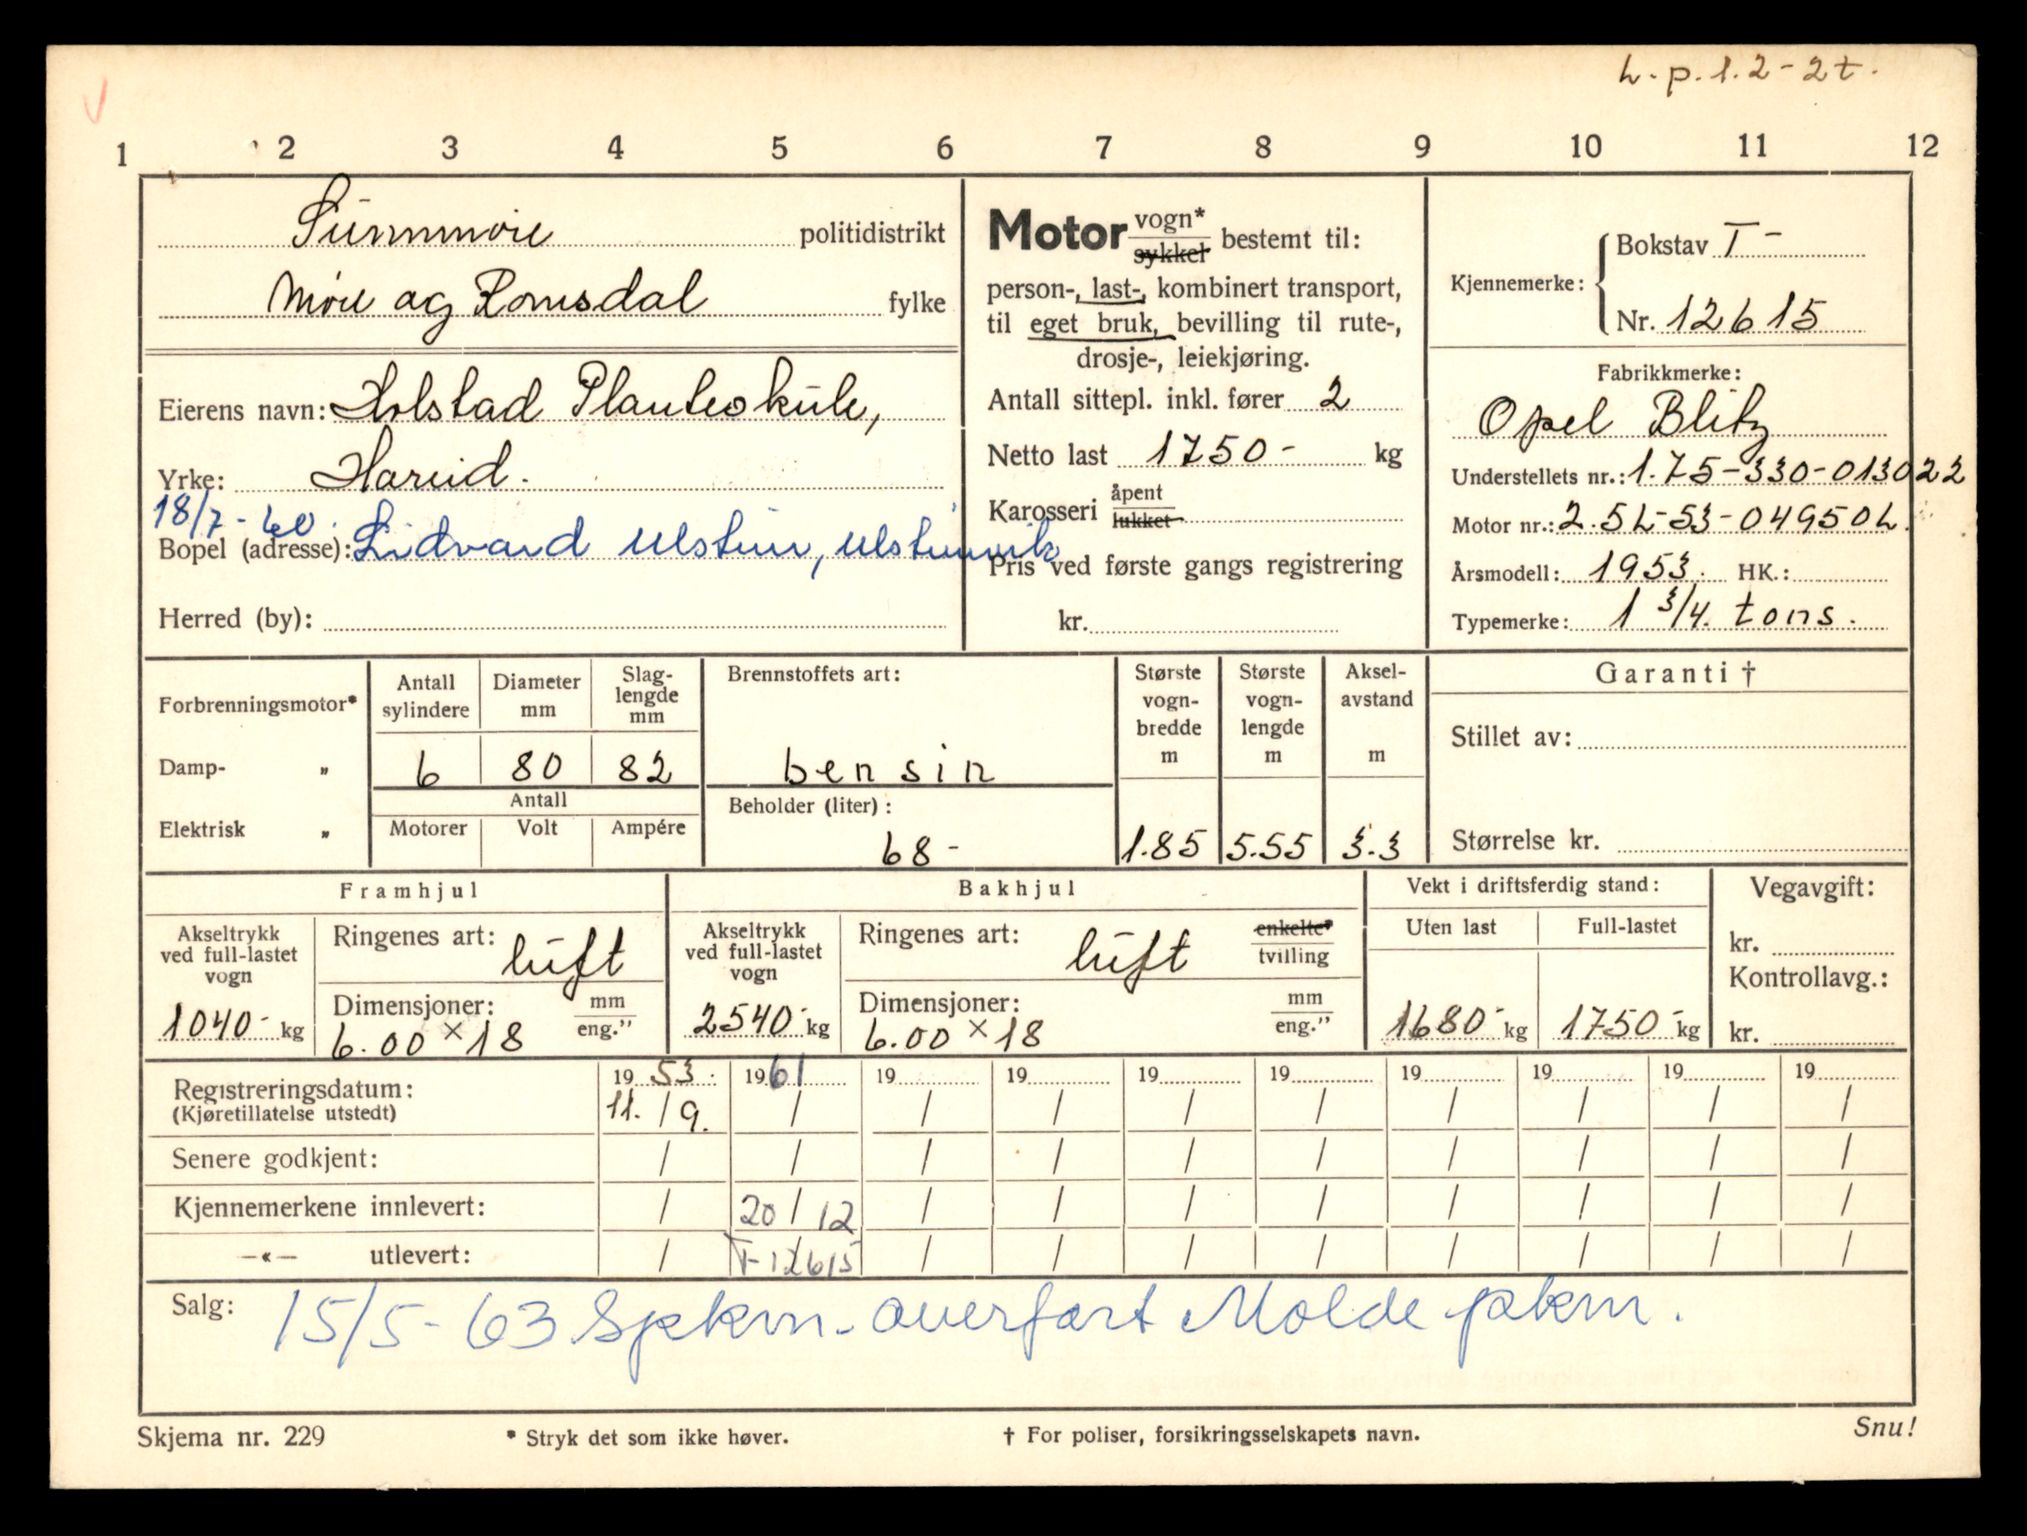 L.p.1.2-2t.
1 2 3 4 5 6 7 8 9 10 11 12
Sunnmøre politidistrikt
Møre og Romsdal fylke
Eierens navn: Holstad Planteskule,
Yrke: Hareid.
18/7-60.
Bopel (adresse): Sidvard Ulstein, Ulsteinvik
Herred (by):
Motor vogn* sykkel bestemt til:
person-, last-, kombinert transport,
til eget bruk, bevilling til rute-,
drosje-, leiekjøring.
Antall sittepl. inkl. fører 2
Netto last 1750- kg
Karosseri åpent lukket
Pris ved første gangs registrering
kr.
Kjennemerke: Bokstav T-
Nr. 12615
Fabrikkmerke:
Opel Blitz
Understellets nr.: 1.75-330-013022
Motor nr.: 2.5L-53-04950L.
Årsmodell: 1953. HK.:
Typemerke: 1 3/4. tons.
Forbrenningsmotor*
Damp- "
Elektrisk "
Antall sylindere
6
Diameter mm
80
Slag-
lengde
mm
82
Antall
Motorer Volt Ampére
Brennstoffets art:
bensin
Beholder (liter):
68-
Største
vogn-
bredde
m
1.85
Største
vogn-
lengde
m
5.55
Aksel-
avstand
m
3.3
Garanti †
Stillet av:
Størrelse kr.
Framhjul
Akseltrykk
ved full-lastet
vogn
1040- kg
Ringenes art: luft
Dimensjoner: mm eng."
6.00 × 18
Bakhjul
Akseltrykk
ved full-lastet
vogn
2540- kg
Ringenes art: luft enkelte* tvilling
Dimensjoner: mm eng."
6.00 × 18
Vekt i driftsferdig stand:
Uten last Full-lastet
1680- kg 1750- kg
Vegavgift:
kr.
Kontrollavg.:
kr.
Registreringsdatum: 19 53. 19 61 19 19 19 19 19 19 19 19
(Kjøretillatelse utstedt) 11. / 9. / / / / / / / / /
Senere godkjent: / / / / / / / / / /
Kjennemerkene innlevert: / 20 / 12 / / / / / / / /
—«— utlevert: / T-12615 / / / / / / / /
Salg: 15/5-63 Spkm. overført Molde pkm.
Skjema nr. 229 * Stryk det som ikke høver. † For poliser, forsikringsselskapets navn. Snu!